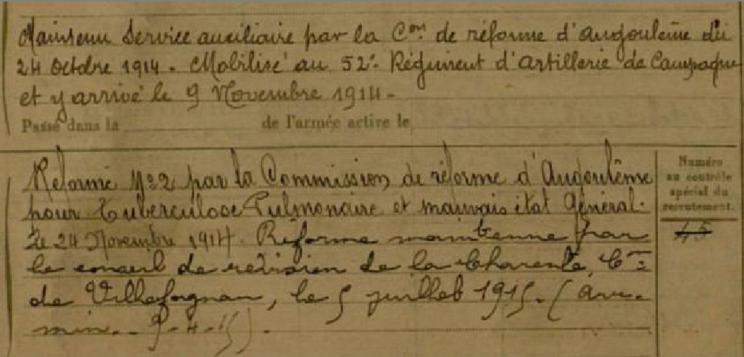 Maintenu Service auxiliaire par la Con de réforme d'Angoulême du
24 Octobre 1914. Mobilisé au 52e Régiment d'Artillerie de Campagne
et y arrivé le 9 Novembre 1914.
Passé dans la de l'armée active le
Numéro
au contrôle
spécial du
recrutement.
45
Réformé No2 par la Commission de réforme d'Angoulême
pour Tuberculose Pulmonaire et mauvais état Général.
le 24 Novembre 1914. Réforme maintenue par
le conseil de révision de la Charente, Con
de Villefagnan, le 5 juillet 1915. (av.
min. 9-4-15).